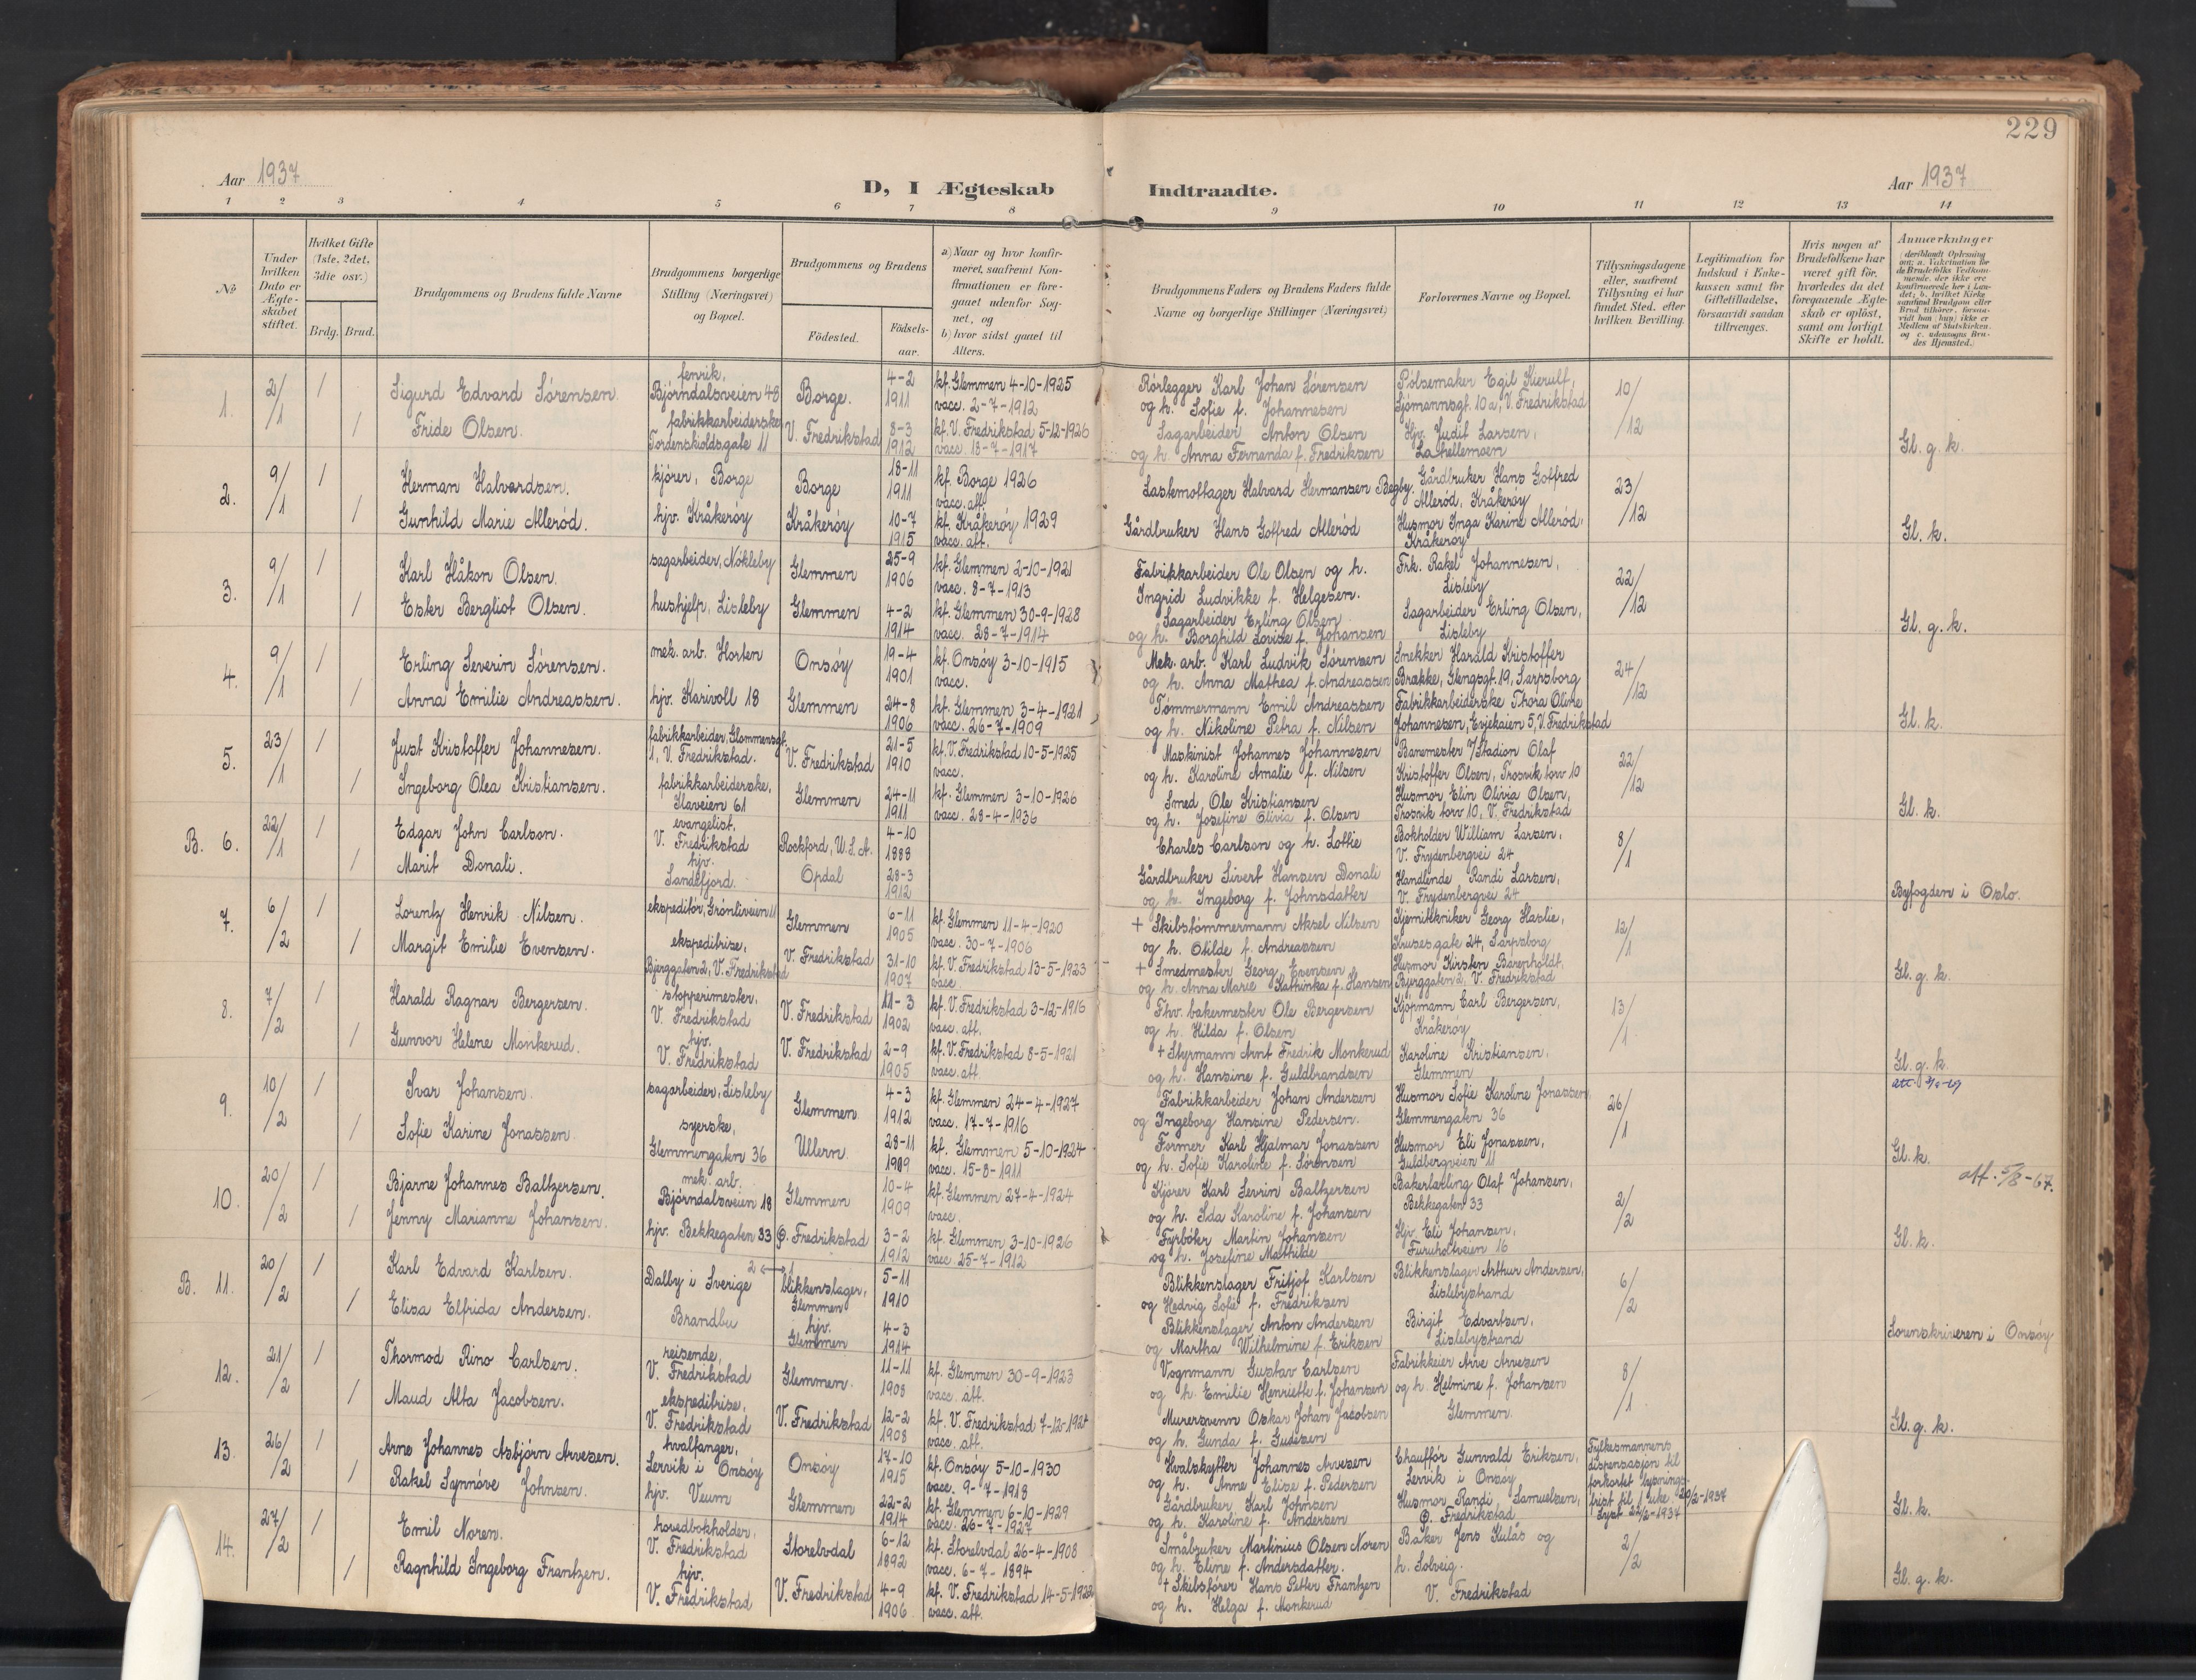 229
Aar 1937
D, I Ægteskab Indtraadte.
Aar 1937
1 2 3 4 5 6 7 8 9 10 11 12 13 14
No
Under hvilken Dato er Ægte-skabet stiftet.
Hvilket Gifte (1ste, 2det, 3die osv.)
Brdg. Brud.
Brudgommens og Brudens fulde Navne
Brudgommens borgerlige Stilling (Næringsvei) og Bopæl.
Brudgommens og Brudens
Födested.
Födsels-aar.
a) Naar og hvor konfir-meret, saafremt Kon-firmationen er fore-gaaet udenfor Sog-net, og
b) hvor sidst gaaet til Alters.
Brudgommens Faders og Brudens Faders fulde Navne og borgerlige Stillinger (Næringsvei)
Forlovernes Navne og Bopæl.
Tillysningsdagene eller, saafremt Tillysning ei har fundet Sted, efter hvilken Bevilling.
Legitimation for Indskud i Enke-kassen samt for Giftetilladelse, forsaavidt saadan tiltrænges.
Hvis nogen af Brudefolkene har været gift før, hvorledes da det foregaaende Ægte-skab er opløst, samt om lovligt Skifte er holdt.
Anmærkninger (deriblandt Oplysning om: a. Vakcination for de Brudefolks Vedkom-mende, der ikke ere konfirmerede her i Lan-det; b. hvilket Kirke-samfund Brudgom eller Brud tilhører, forsaa-vidt han (hun) ikke er Medlem af Statskirken, og c. udensogns Bru-des Hjemsted.)
1. 2/1 / Sigurd Edvard Sørensen. fenrik, Bjørndalsveien 48 Borge. 4-2 1911 kf. Glemmen 4-10-1925 vacc. 2-7-1912 Rørlegger Karl Johan Sørensen og h. Sofie f. Johannesen Pølsemaker Egil Kierulf, Sjømannsgt. 10a, V. Fredrikstad 10/12
/ Fride Olsen. fabrikkarbeiderske Tordenskioldsgate 11 V. Fredrikstad 8-3 1912 kf. V. Fredrikstad 5-12-1926 vacc. 18-7-1917 Sagarbeider Anton Olsen og h. Anna Fernanda f. Fredriksen Hjv. Judit Larsen, Lahellemoen Gl. g. k.
2. 9/1 / Herman Halvardsen. kjører, Borge Borge 18-11 1911 kf. Borge 1926 vacc. att. Lastemottager Halvard Hermansen Begby. Gårdbruker Hans Gotfred Allerød, Kråkerøy 23/12
/ Gunhild Marie Allerød. hjv. Kråkerøy Kråkerøy 10-7 1915 kf. Kråkerøy 1929 vacc. att. Gårdbruker Hans Gotfred Allerød Husmor Inga Karine Allerød, Kråkerøy Gl. k.
3. 9/1 / Karl Håkon Olsen. sagarbeider, Nøkleby Glemmen 25-9 1906 kf. Glemmen 2-10-1921 vacc. 8-7-1913 Fabrikkarbeider Ole Olsen og h. Ingrid Ludvikke f. Helgesen. Frk. Rakel Johannesen, Lisleby 22/12
/ Ester Bergliot Olsen. hushjelp, Lisleby Glemmen 4-2 1914 kf. Glemmen 30-9-1928 vacc. 28-7-1914 Sagarbeider Erling Olsen og h. Borghild Lovise f. Johansen Sagarbeider Erling Olsen, Lisleby Gl. g. k.
4. 9/1 / Erling Severin Sørensen. mek. arb. Horten Onsøy 19-4 1901 kf. Onsøy 3-10-1915 vacc. Mek. arb. Karl Ludvik Sørensen og h. Anna Mathea f. Andreassen Snekker Harald Kristoffer Brække, Glengsgt. 19, Sarpsborg 24/12
/ Anna Emilie Andreassen. hjv. Karivoll 18 Glemmen 24-8 1906 kf. Glemmen 3-4-1921 vacc. 26-7-1909 Tømmermann Emil Andreassen og h. Nikoline Petra f. Nilsen Fabrikkarbeiderske Thora Oline Johannesen, Evjekaien 5, V. Fredrikstad Gl. k.
5. 23/1 / Just Kristoffer Johannesen. fabrikkarbeider, Glommensgt. 1, V. Fredrikstad. V. Fredrikstad 21-5 1910 kf. V. Fredrikstad 10-5-1925 vacc. Maskinist Johannes Johannesen og h. Karoline Amalie f. Nilsen Banemester v/Stadion Olaf Kristoffer Olsen, Trosvik torv 10 22/12
/ Ingeborg Olea Kristiansen. fabrikkarbeiderske, Ilaveien 61 Glemmen 24-11 1911 kf. Glemmen 3-10-1926 vacc. 28-4-1936 Smed Ole Kristiansen og h. Josefine Olivia f. Olsen Husmor Elin Olivia Olsen, Trosvik torv 10, V. Fredrikstad Gl. k.
B. 6. 22/1 / Edgar John Carlson. evangelist, V. Fredrikstad Rockford, U.S.A. 4-10 1888 Charles Carlson og h. Lottie Bokholder William Larsen, V. Frydenbergvei 24 8/1
/ Marit Donali. hjv. Sandefjord. Opdal 28-3 1912 Gårdbruker Sivert Hansen Donali og h. Ingeborg f. Johnsdatter Handlende Randi Larsen, V. Frydenbergvei 24 Byfogden i Oslo.
7. 6/2 / Lorentz Henrik Nilsen. ekspeditör, Grönliveien 11 Glemmen 6-11 1905 kf. Glemmen 11-4-1920 vacc. 30-7-1906 + Skibstømmermann Aksel Nilsen og h. Otilde f. Andreassen Kjemitekniker Georg Haslie, Kruses gate 24, Sarpsborg 12/1
/ Margit Emilie Evensen. ekspeditrise, Bjerggaten 2, V. Fredrikstad V. Fredrikstad 31-10 1907 kf. V. Fredrikstad 13-5-1923 vacc. + Smedmester Georg Evensen og h. Anna Marie Kathinka f. Hansen Husmor Kirsten Barenholdt, Bjerggaten 2, V. Fredrikstad Gl. g. k.
8. 7/2 / Harald Ragnar Bergersen. stopperimester, V. Fredrikstad V. Fredrikstad 11-3 1902 kf. V. Fredrikstad 3-12-1916 vacc. att. Fhv. bakermester Ole Bergersen og h. Hilda f. Olsen Kjøpmann Carl Bergersen, Kråkerøy 13/1
/ Gunvor Helene Monkerud. hjv. V. Fredrikstad V. Fredrikstad 2-9 1905 kf. V. Fredrikstad 8-5-1921 vacc. att + Styrmann Arnt Fredrik Monkerud og h. Hansine f. Guldbrandsen Karoline Kristiansen, Glemmen Gl. g. k.
9. 10/2 / Ivar Johansen. sagarbeider, Lisleby Glemmen 4-3 1912 kf. Glemmen 24-4-1927 vacc. 17-7-1916 Fabrikkarbeider Johan Andersen og Ingeborg Hansine Pedersen. Husmor Sofie Karoline Jonassen, Glemmengaten 36 26/1
/ Sofie Karine Jonassen. syerske, Glemmengaten 36 Ullern 28-11 1909 kf. Glemmen 5-10-1924 vacc. 15-8-1911 Former Karl Hjalmar Jonassen og h. Sofie Karoline f. Sørensen Husmor Eli Jonassen, Guldbergveien 11 Gl. k.
att. 5/8-67.
10. 20/2 / Bjarne Johannes Baltzersen. mek. arb. Bjørndalsveien 18 Glemmen 10-4 1909 kf. Glemmen 27-4-1924 vacc. Kjører Karl Sevrin Baltzersen og h. Ida Karoline f. Johansen Bakerlærling Olaf Johansen, Bekkegaten 33 2/2
/ Jenny Marianne Johansen. hjv. Bekkegaten 33 Ø. Fredrikstad 3-2 1912 kf. Glemmen 3-10-1926 vacc 25-7-1912 Fyrbøter Martin Johansen og h. Josefine Mathilde Hjv. Eli Johansen, Furuholtveien 16 Gl. k.
B. 11. 20/2 / Karl Edvard Karlsen. Dalby i Sverige 2 ↔ 1 blikkenslager, Glemmen 5-11 1910 Blikkenslager Fritjof Karlsen og Hedvig Sofie f. Fredriksen Blikkenslager Arthur Andersen, Lislebystrand 6/2
/ Elisa Elfrida Andersen. Brandbu hjv. Glemmen 4-3 1914 Blikkenslager Anton Andersen og Martha Wilhelmine f. Eriksen Birgit Edvartsen, Lislebystrand Sorenskriveren i Onsøy
12. 21/2 / Thormod Rino Carlsen. reisende, V. Fredrikstad Glemmen. 11-11 1908 kf. Glemmen 30-9-1923 vacc. att. Vognmann Gustav Carlsen og h. Emilie Henriette f. Johansen Fabrikkeier Arve Arvesen og h. Helmine f. Johansen Glemmen. 8/1
/ Maud Alta Jacobsen. ekspeditrise, V. Fredrikstad V. Fredrikstad 12-2 1908 kf. V. Fredrikstad 7-12-1924 vacc. att. Murersvenn Oskar Johan Jacobsen og h. Gunda f. Gudesen Gl. g. k.
13. 26/2 / Arne Johannes Asbjørn Arvesen. hvalfanger, Lervik i Onsøy Onsøy 17-10 1915 kf. Onsøy 5-10-1930 vacc. 9-7-1918 Hvalskytter Johannes Arvesen og h. Anne Elise f. Pedersen Chauffør Gunvald Eriksen, Lervik i Onsøy Fylkesmannens dispensasjon til forkortet lysnings-frist til 1 uke. 20/2-1937
/ Rakel Synnøve Johnsen. hjv. Veum Glemmen 22-2 1914 kf. Glemmen 6-10-1929 vacc. 26-7-1927 Gårdbruker Karl Johnsen og h. Karoline f. Andersen Husmor Randi Samuelsen, Ø. Fredrikstad Lyst 22/2-1937 Gl. k.
14. 27/2 / Emil Noren. hovedbokholder, V. Fredrikstad Storelvdal 6-12 1892 kf. Storelvdal 26-4-1908 vacc. 6-7-1894 Småbruker Martinius Olsen Noren og h. Eline f. Andersdatter. Baker Jens Kulås og h. Solveig. V. Fredrikstad 2/2
/ Ragnhild Ingeborg Frantzen. hjv. V. Fredrikstad V. Fredrikstad 4-9 1906 kf. V. Fredrikstad 14-5-1922 vacc. att. + Skibsfører Hans Petter Frantzen og h. Helga f. Monkerud Gl. g. k.